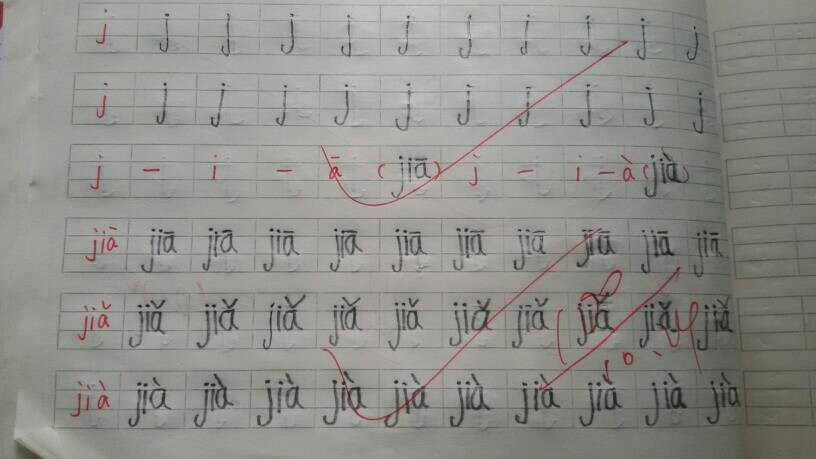 j j j j j j j j j j j
j j j j j j j j j j j
j - i - ā (jiā) j - i - à (jià)
jiā jiā jiā jiā jiā jiā jiā jiā jiā jiā jiā
jiǎ jiǎ jiǎ jiǎ jiǎ jiǎ jiǎ jiǎ jiǎ jiǎ jiǎ
jià jià jià jià jià jià jià jià jià jià jià